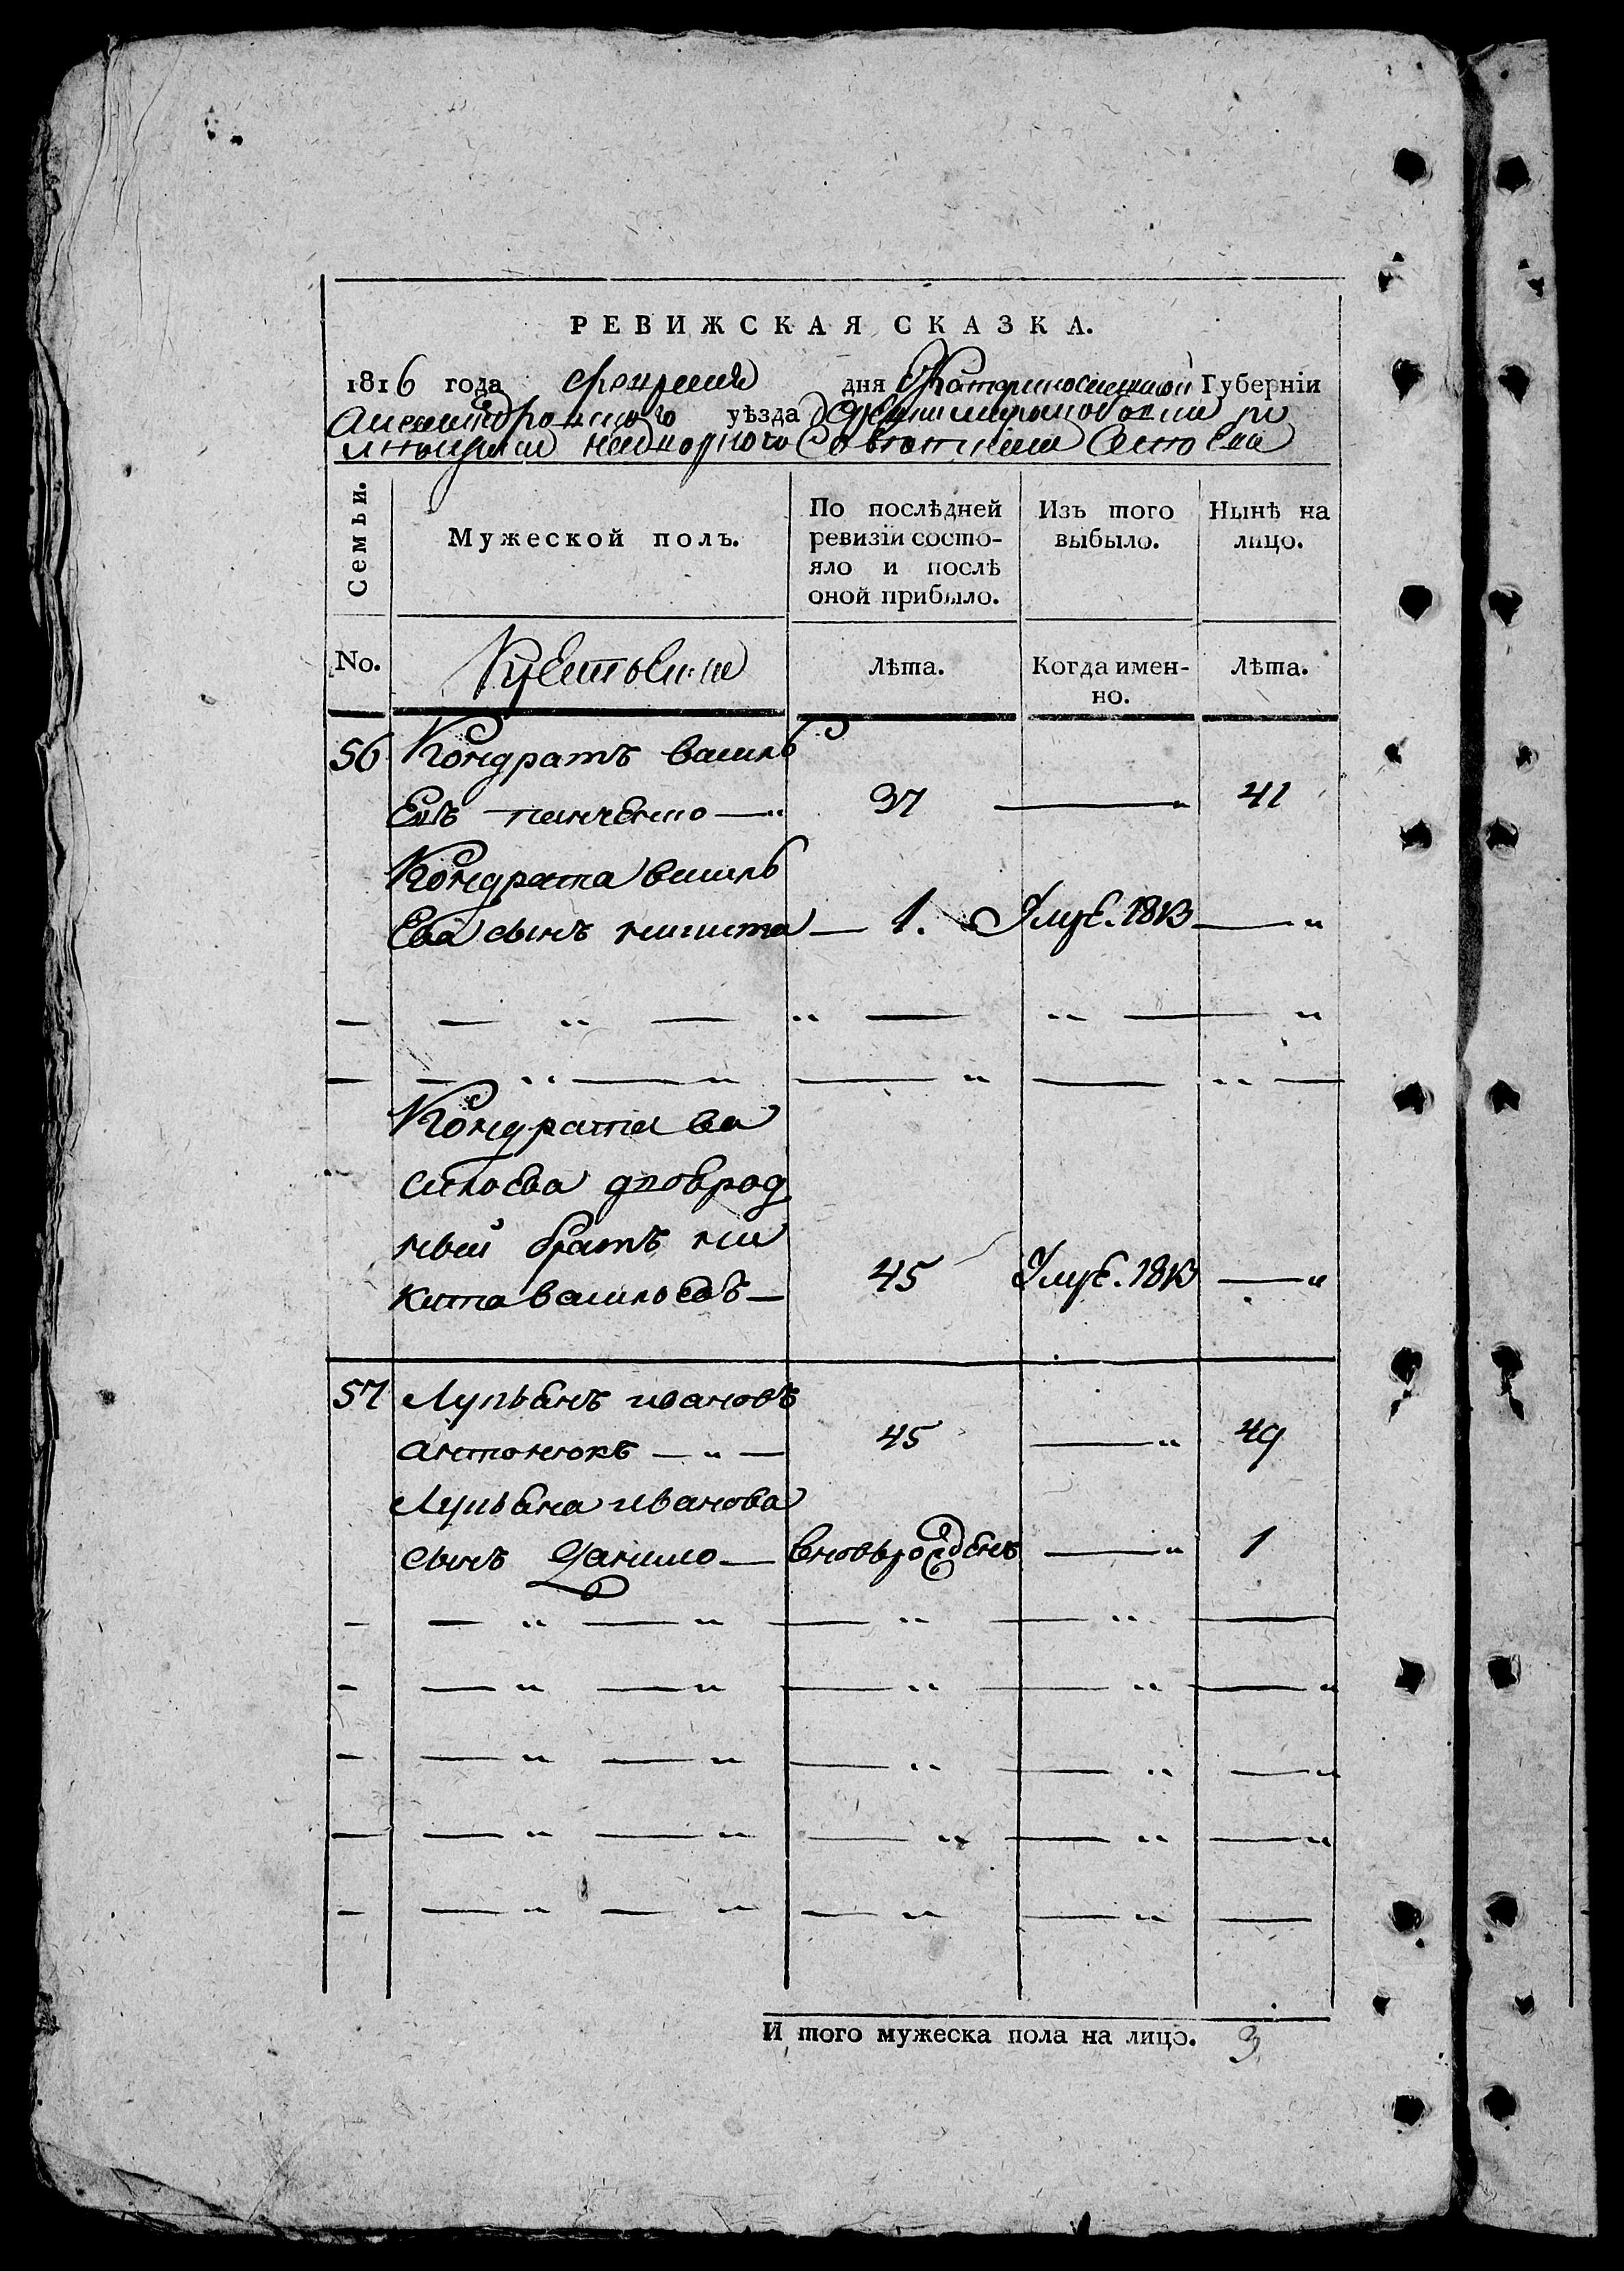 РЕВИЖСКАЯ СКАЗКА.
1816 года февраля дня Екатеринославской Губерніи
Александровского уѣзда
надворного Советника
Семьи. Мужеской полъ. По послѣдней ревизіи состояло и послѣ оной прибыло. Изъ того выбыло. Нынѣ на лицо.
No. Крестьяни Лѣта. Когда именно. Лѣта.
56 Кондратъ василь
евъ панченко — " 37 — " 41
Кондрата василь
ева сынъ никита — 1. Умре. 1813 — "
Кондратия ва
сильева двоврод
ный братъ ни
кита васильевъ — 45 Умре. 1813 — "
57 Лупьянъ ивановъ
антонюкъ — " — 45 — " 49
Лупьяна иванова
сынъ Данило — вновьрожденъ — " 1
И того мужеска пола на лицо. 3